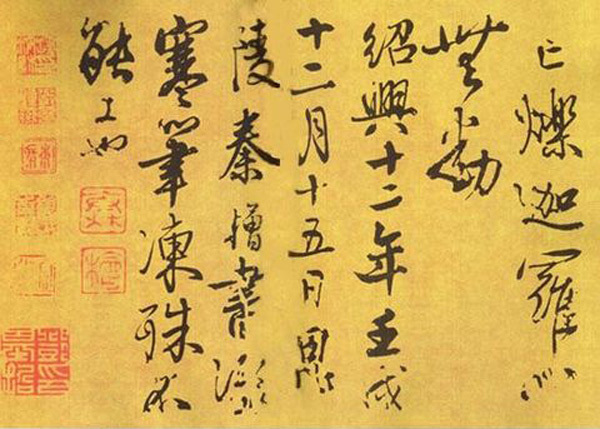 亡爍迦羅心
無動
紹興十二年壬戌
十二月十五日
陵秦書深
寒筆凍殊不
能工也